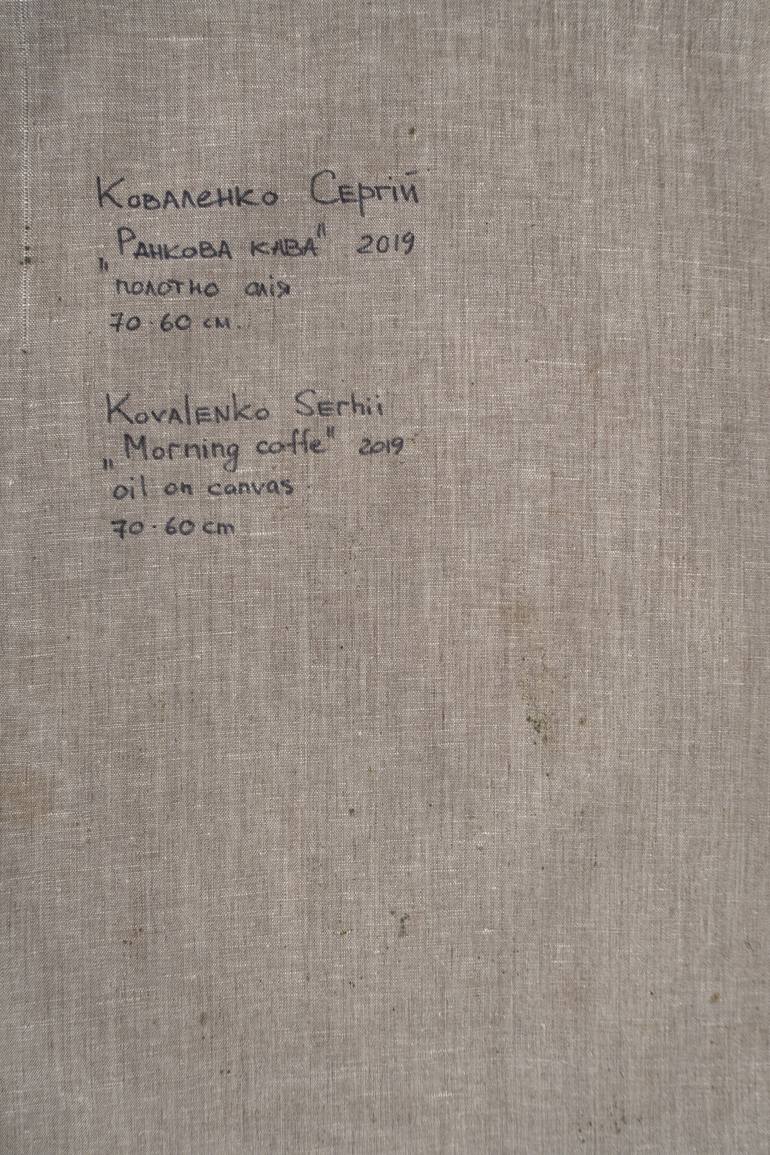 Коваленко Сергій
„Ранкова кава" 2019
полотно олія
70·60 см.
Kovalenko Serhii
„Morning coffe" 2019
oil on canvas
70·60 cm